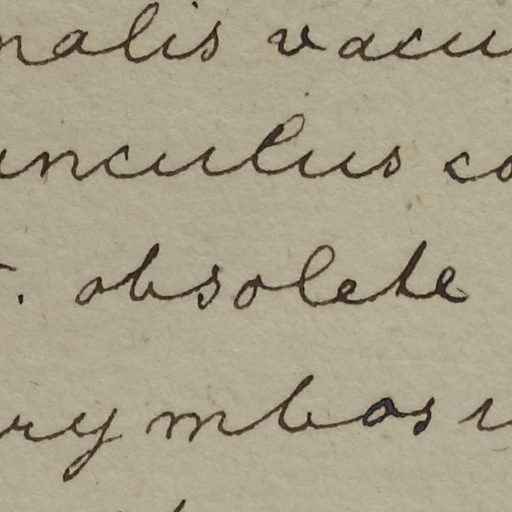 nalis vacu
unculus co
. obsolete
rymbos